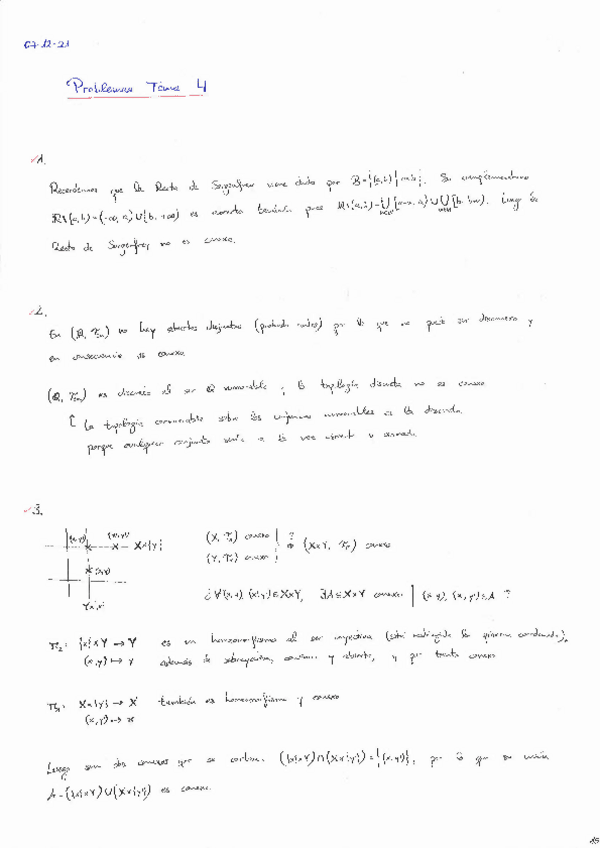 07-12-21
Problemas Tema 4
1.
Recordemos que la Recta de Sorgenfrey viene dada por B={[a,b) | a<b}. Su complementario
R\[a,b)=(-∞,a)∪[b,+∞) es abierto también pues Luego la
Recta de Sorgenfrey no es conexa.
2.
En (Q, ) no hay abiertos disjuntos por lo que no puede ser disconexo y
en consecuencia es conexo.
(Q, ) es discreto al ser Q numerable y la topología discreta no es conexa
La topología conumerable sobre los conjuntos numerables es la discreta
porque cualquier conjunto sería a la vez abierto y cerrado.
3.
(x,y) (x',y') X×{y}
(X, ) conexo ? (X×Y, ) conexo
(Y, ) conexo
¿∀(x,y),(x',y')∈X×Y, ∃A⊆X×Y conexo | (x,y),(x',y')∈A ?
π₂: {x}×Y → Y es un homeomorfismo al ser inyectiva (está la primera coordenada),
(x,y) ↦ y además de sobreyectiva, continua y abierta, y por tanto conexo
π₁: X×{y} → X también es homeomorfismo y conexo
(x,y) → x
Luego son dos conexos que se cortan: ({x}×Y)∩(X×{y})={(x,y)}, por lo que su unión
A=({x}×Y)∪(X×{y}) es conexa.